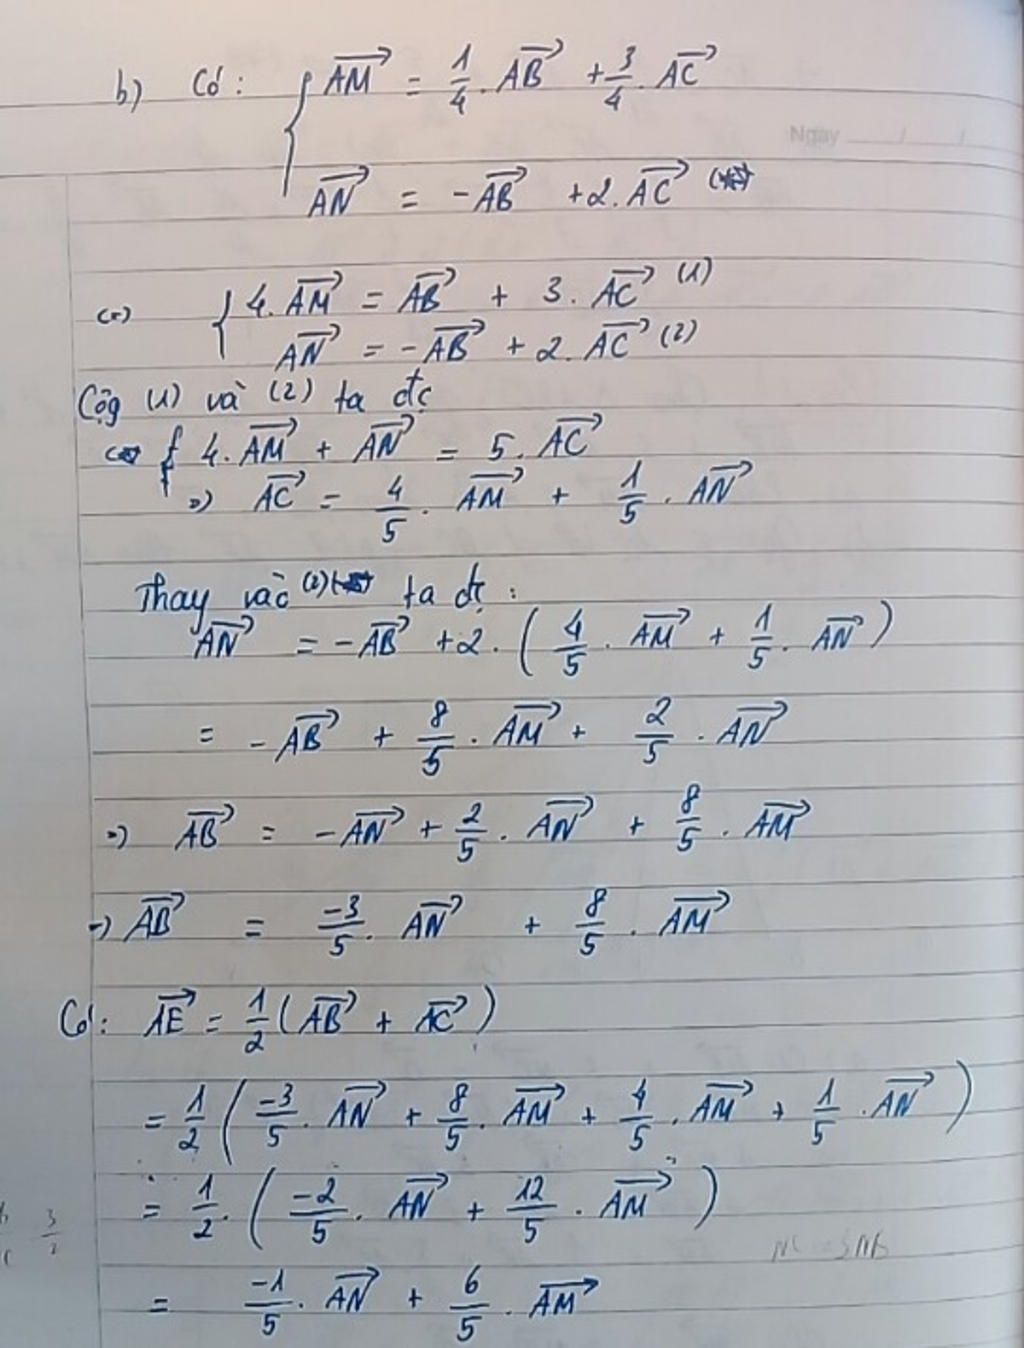 Ngày
b) Có: { AM→ = 1/4 . AB→ + 3/4 . AC→
AN→ = -AB→ + 2. AC→
(=) { 4. AM→ = AB→ + 3. AC→ (1)
AN→ = -AB→ + 2. AC→ (2)
Cộg (1) và (2) ta đc
{ 4. AM→ + AN→ = 5. AC→
=) AC→ = 4/5 . AM→ + 1/5 . AN→
Thay vào (2) ta đc :
AN→ = -AB→ + 2. ( 4/5 . AM→ + 1/5 . AN→ )
= -AB→ + 8/5 . AM→ + 2/5 . AN→
=) AB→ = -AN→ + 2/5 . AN→ + 8/5 . AM→
=) AB→ = -3/5 . AN→ + 8/5 . AM→
Có: AE→ = 1/2 ( AB→ + AC→ )
= 1/2 ( -3/5 . AN→ + 8/5 . AM→ + 4/5 . AM→ + 1/5 . AN→ )
= 1/2 . ( -2/5 . AN→ + 12/5 . AM→ )
3/2
NC = 3NB
= -1/5 . AN→ + 6/5 . AM→